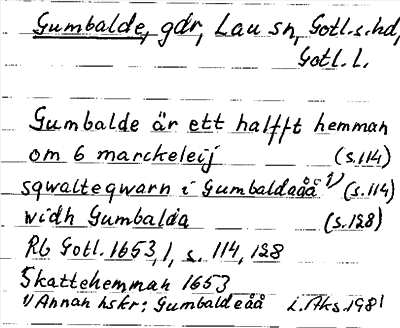 Gumbalde, gdr, Lau sn, Gotl. s. hd,
Gotl. l.
Gumbalde är ett halfft hemman
om 6 marckeleij (s. 114)
sqwalteqwarn i Gumbaldaåå 1) (s. 114)
widh Gumbalda (s. 128)
Rb Gotl. 1653, 1, s. 114, 128
Skattehemman 1653
1) Annan hskr: Gumbaldeåå L. Aks. 1981